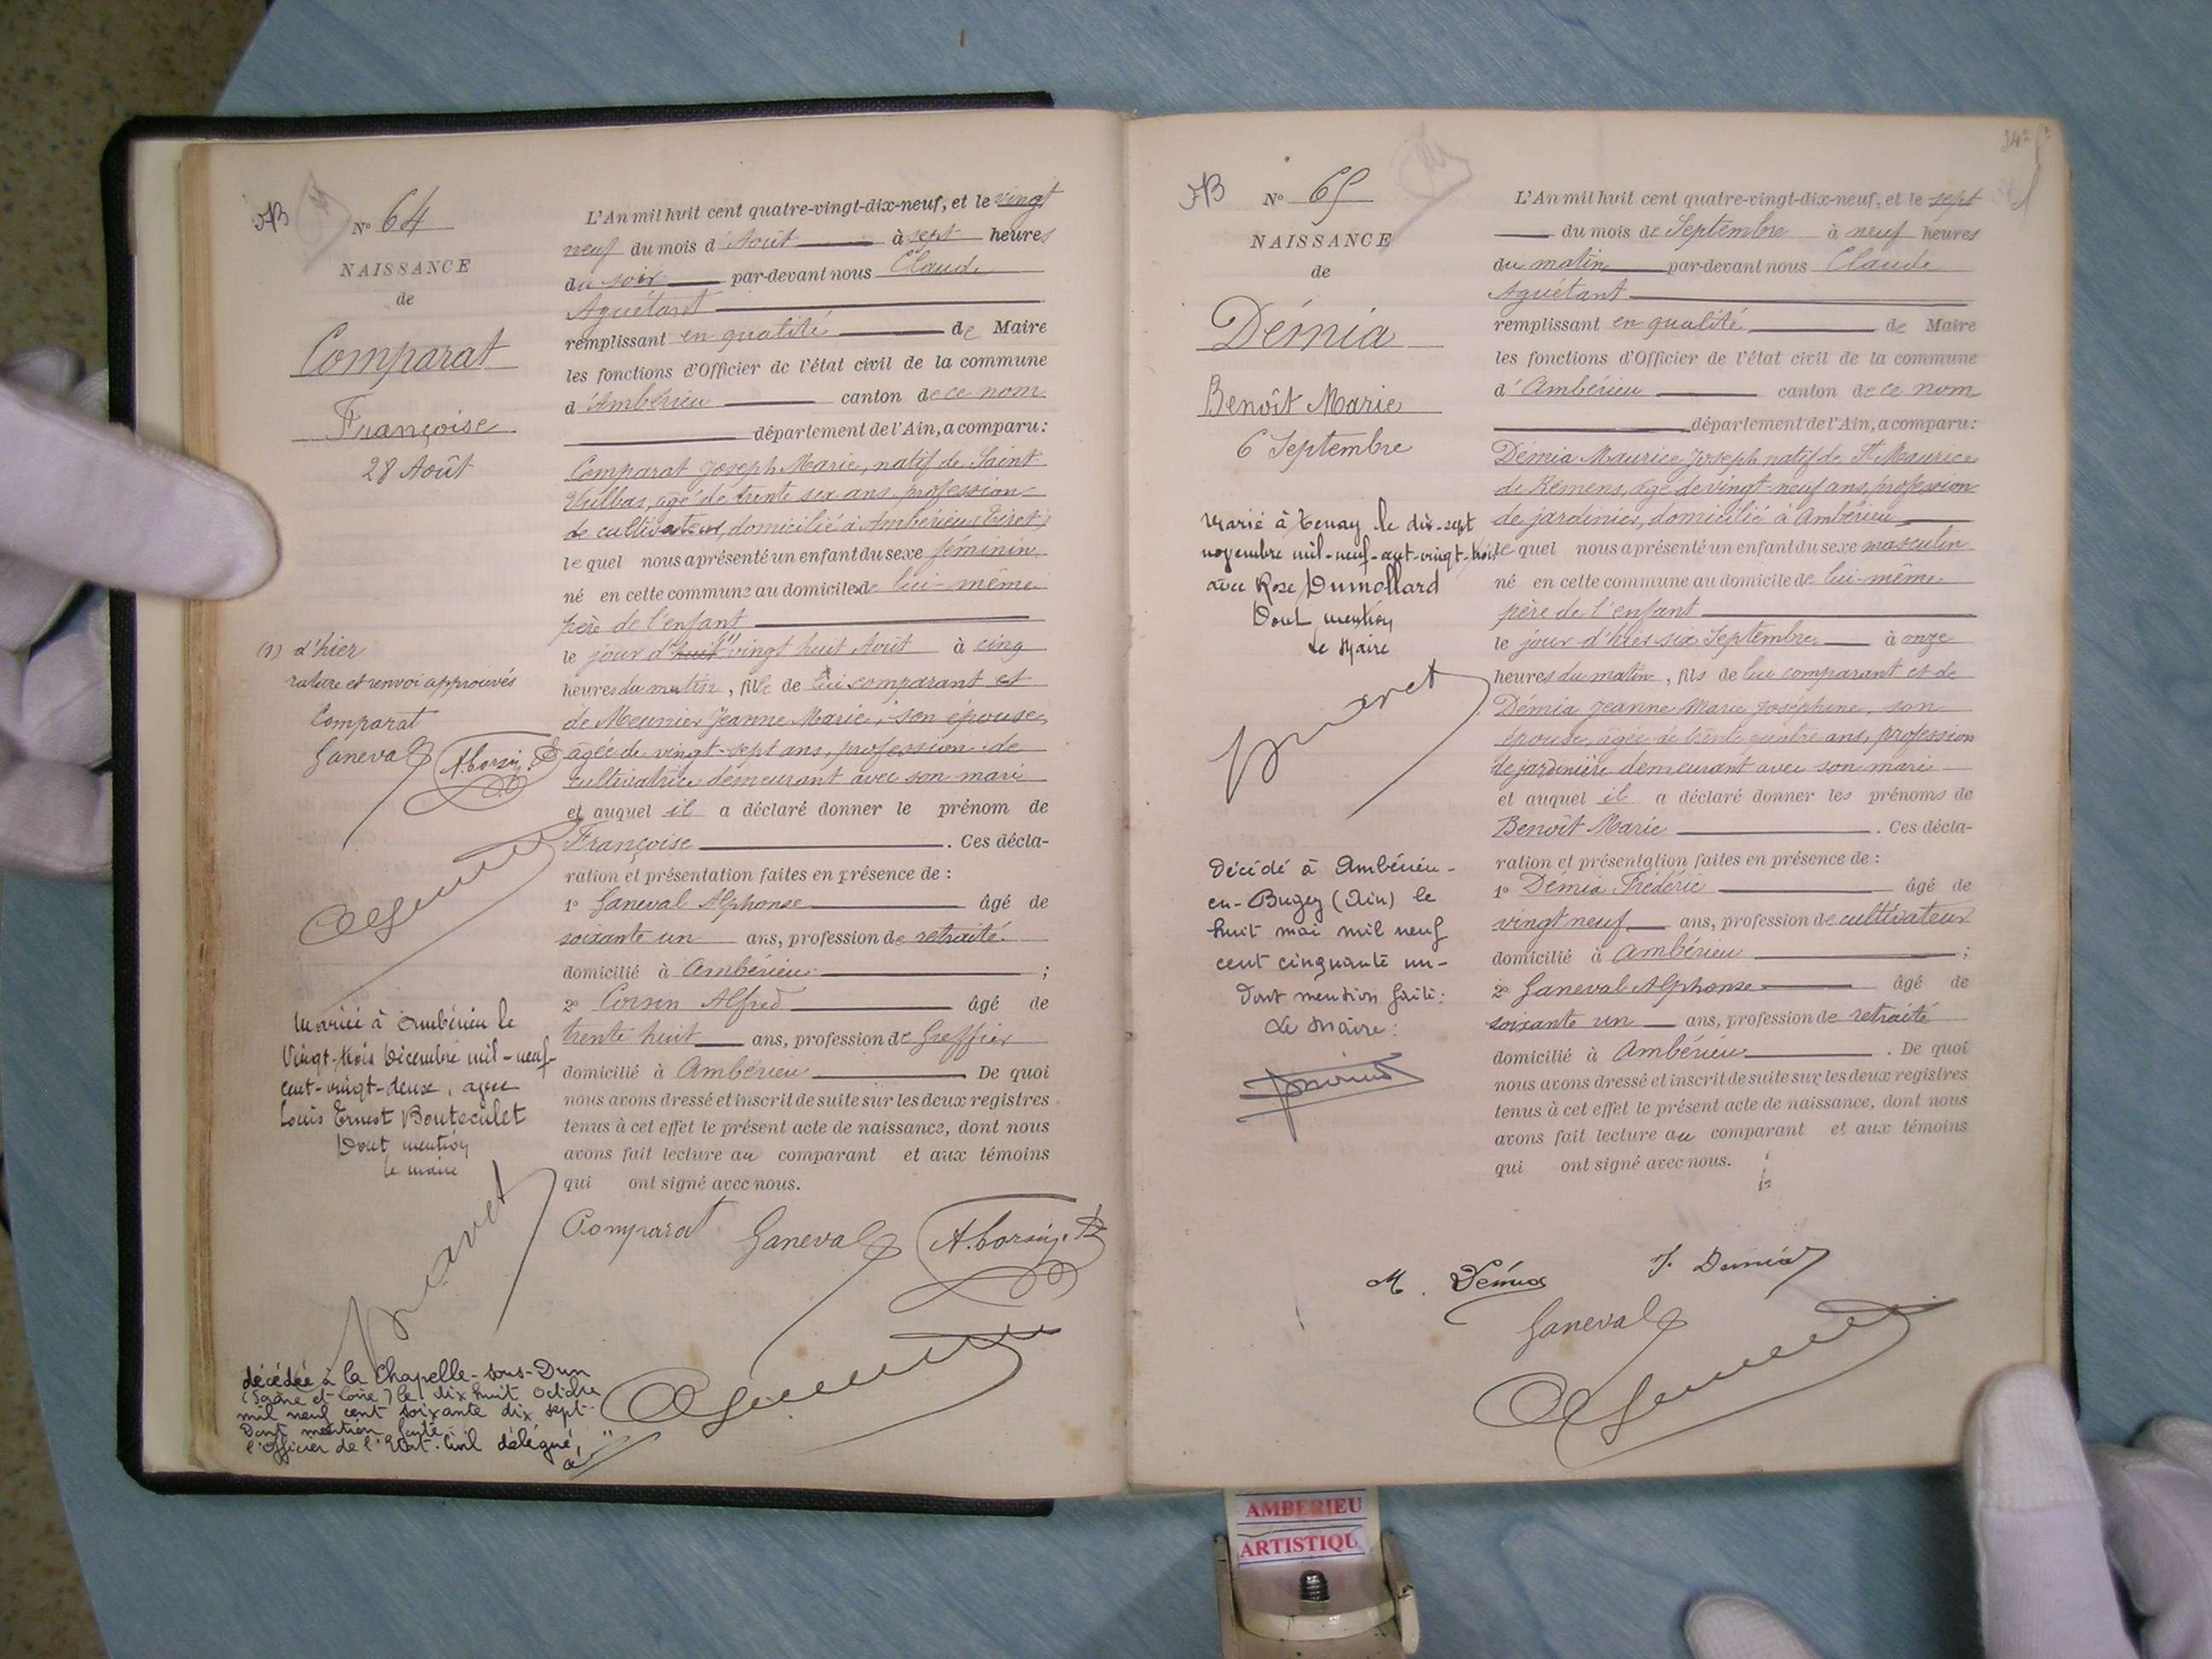 N° 64
NAISSANCE
de
Comparat
Françoise
28 Août
(1) d'hier
rature et renvoi approuvés
Comparat
Ganeval
Mariée à Ambérieu le
vingt-trois décembre mil-neuf-
cent-vingt-deux, avec
Louis Ernest Bouteculet
Dont mention
le maire
décédée à la Chapelle-sous-Dun
(Saône et Loire) le dix huit octobre
mil neuf cent soixante dix sept
Dont mention faite
l'Officier de l'Etat-Civil délégué,
L'An mil huit cent quatre-vingt-dix-neuf, et le vingt
neuf du mois d'Août à sept heures
du soir par-devant nous Claude
Aguétant
remplissant en qualité de Maire
les fonctions d'Officier de l'état civil de la commune
d'Ambérieu canton de ce nom
département de l'Ain, a comparu :
Comparat Joseph Marie, natif de Saint
Vulbas, âgé de trente six ans, profession
de cultivateur, domicilié à Ambérieu (Tiret)
lequel nous a présenté un enfant du sexe féminin
né en cette commune au domicile de lui-même
père de l'enfant
le jour d'huit (1) vingt huit Août à cinq
heures du matin, fille de lui comparant et
de Meunier Jeanne Marie, son épouse,
âgée de vingt-sept ans, profession de
cultivatrice demeurant avec son mari
et auquel il a déclaré donner le prénom de
Françoise . Ces décla-
ration et présentation faites en présence de :
1° Ganeval Alphonse âgé de
soixante un ans, profession de retraité
domicilié à Ambérieu ;
2° Corsin Alfred âgé de
trente huit ans, profession de Greffier
domicilié à Ambérieu De quoi
nous avons dressé et inscrit de suite sur les deux registres
tenus à cet effet le présent acte de naissance, dont nous
avons fait lecture au comparant et aux témoins
qui ont signé avec nous.
Comparat Ganeval A. Corsin
N° 65
NAISSANCE
de
Démia
Benoît Marie
6 Septembre
Marié à Tenay le dix-sept
novembre mil-neuf-cent-vingt-trois
avec Rose Dumollard
Dont mention
Le Maire
Décédé à Ambérieu-
en-Bugey (Ain) le
huit mai mil neuf
cent cinquante un-
Dont mention faite :
Le Maire :
L'An mil huit cent quatre-vingt-dix-neuf, et le sept
du mois de Septembre à neuf heures
du matin par-devant nous Claude
Aguétant
remplissant en qualité de Maire
les fonctions d'Officier de l'état civil de la commune
d'Ambérieu canton de ce nom
département de l'Ain, a comparu :
Démia Maurice Joseph natif de St Maurice
de Rémens, âgé de vingt-neuf ans, profession
de jardinier, domicilié à Ambérieu
lequel nous a présenté un enfant du sexe masculin
né en cette commune au domicile de lui-même
père de l'enfant
le jour d'hier six Septembre à onze
heures du matin, fils de lui comparant et de
Démia Jeanne Marie Joséphine, son
épouse, âgée de trente quatre ans, profession
de jardinière demeurant avec son mari
et auquel il a déclaré donner les prénoms de
Benoît Marie . Ces décla-
ration et présentation faites en présence de :
1° Démia Frédéric âgé de
vingt neuf ans, profession de cultivateur
domicilié à Ambérieu ;
2° Ganeval Alphonse âgé de
soixante un ans, profession de retraité
domicilié à Ambérieu . De quoi
nous avons dressé et inscrit de suite sur les deux registres
tenus à cet effet le présent acte de naissance, dont nous
avons fait lecture au comparant et aux témoins
qui ont signé avec nous.
M. Démia
Ganeval
AMBERIEU
ARTISTIQU